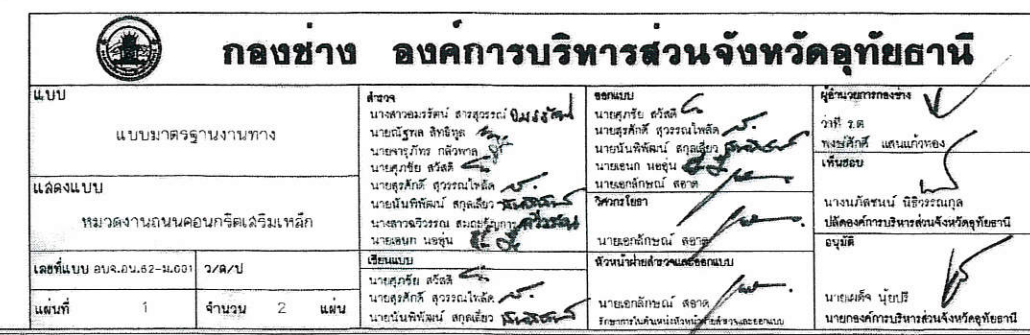 กองช่าง องค์การบริหารส่วนจังหวัดอุทัยธานี
แบบ
แบบมาตรฐานงานทาง
แสดงแบบ
หมวดงานถนนคอนกรีตเสริมเหล็ก
เลขที่แบบ อบจ.อน.62-ม.001 ว/ด/ป
แผ่นที่ 1 จำนวน 2 แผ่น
สำรวจ
นางสาวอมรรัตน์ สารสุวรรณ์
นายณัฐพล สิทธิทูล
นายจารุภัทร กลิ่วพาล
นายศุภชัย สวัสดี
นายสุรศักดิ์ สุวรรณโพลัด
นายนันพิพัฒน์ สกุลเสี่ยว
นางสาวฉวีวรรณ
นายเอนก นออุ่น
เขียนแบบ
นายศุภชัย สวัสดี
นายสุรศักดิ์ สุวรรณโพลัด
นายนันพิพัฒน์ สกุลเสี่ยว
ออกแบบ
นายศุภชัย สวัสดี
นายสุรศักดิ์ สุวรรณโพลัด
นายนันพิพัฒน์ สกุลเสี่ยว
นายเอนก นออุ่น
นายเอกลักษณ์ สอาด
วิศวกรโยธา
นายเอกลักษณ์ สอาด
หัวหน้าฝ่ายสำรวจและออกแบบ
นายเอกลักษณ์ สอาด
รักษาการในตำแหน่งหัวหน้าฝ่ายสำรวจและออกแบบ
ผู้อำนวยการกองช่าง
ว่าที่ ร.ต
พงษ์ศักดิ์ แสนแก้วทอง
เห็นชอบ
นางนภัสชนน์ นิธิวรรณกุล
ปลัดองค์การบริหารส่วนจังหวัดอุทัยธานี
อนุมัติ
นายเผด็จ นุ้ยปรี
นายกองค์การบริหารส่วนจังหวัดอุทัยธานี